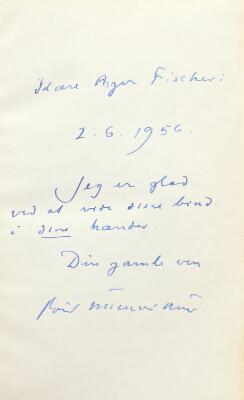 Kære Asger Fischer:
2.6.1956.
Jeg er glad
ved at vide disse bind
i dine hænder.
Din gamle ven